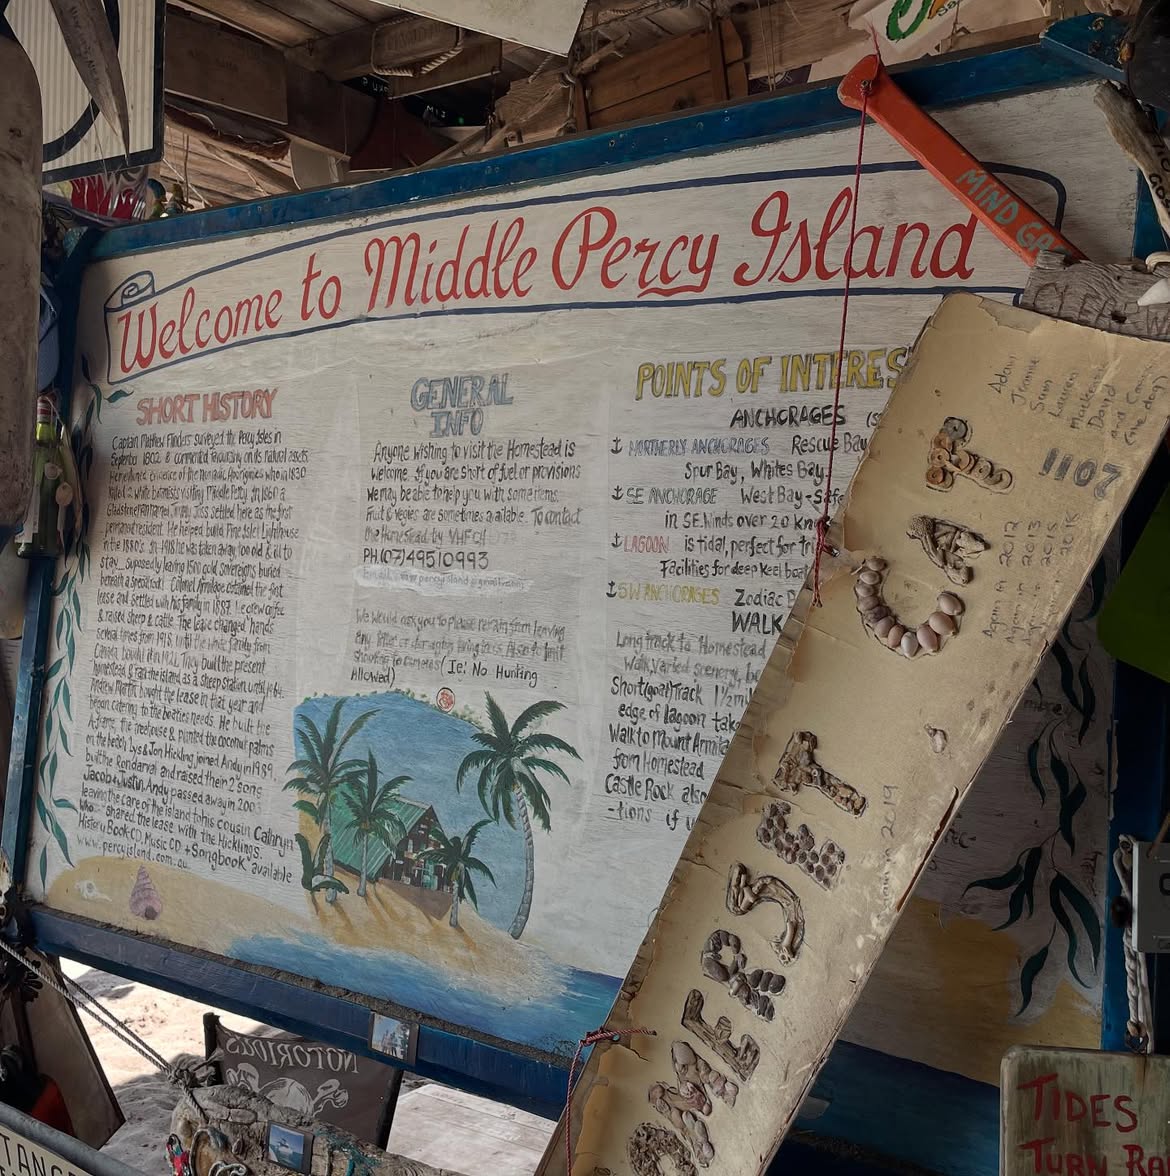 Welcome to Middle Percy Island
MIND GA
SHORT HISTORY
Captain Mathew Flinders surveyed the Percy Isles in
September 1802 & commented favourably on its natural assets
He
evidence of the nomadic Aborigines who in 1830
killed a white
visiting Middle Percy. In 1860 a
Gladstone
settled here as the first
permanent resident. He helped build Pine Islet Lighthouse
in the 1880's. In 1918 he was taken away too old & ill to
stay... Supposedly leaving 1500 gold sovereigns buried
beneath a special tree! Colonel Armitage obtained the first
lease and settled with his family in 1887. He grew coffee
& raised sheep & cattle. The lease changed hands
several times from 1915 until the White family from
Canada bought it in 1921. They built the present
homestead & ran the island as a sheep station until 1964.
Andrew Martin bought the lease in that year and
began catering to the boaties needs. He built the
A frame, the treehouse & planted the coconut palms
on the beach. Lys & Jon Hickling joined Andy in 1989,
built the Rondarval and raised their 2 sons
Jacob & Justin. Andy passed away in 200
leaving the care of the island to his cousin Cathryn
who shared the lease with the Hicklings.
History Book-CD, Music CD + "Songbook" available
www.percyisland.com.au.
GENERAL
INFO
Anyone wishing to visit the Homestead is
welcome. If you are short of fuel or provisions
we may be able to help you with some items.
Fruit & vegies are sometimes available. To contact
the Homestead by VHF CH
PH (07) 49510993
We would ask you to Please refrain from leaving
any litter or damaging living trees. Also to limit
shooting to cameras (Ie: No Hunting
Allowed)
POINTS OF INTERES
ANCHORAGES
NORTHERLY ANCHORAGES Rescue Bay
Spur Bay, Whites Bay,
SE ANCHORAGE West Bay - Safe
in S.E. Winds over 20 kn
LAGOON is tidal, perfect for tri
Facilities for deep keel boat
SW ANCHORAGES Zodiac B
WALK
Long track to Homestead
Walk, Varied scenery, be
Short (goat) Track 1½ mi
edge of lagoon tak
Walk to Mount Armita
from Homestead
Castle Rock also
-tions if y
Adam
Jeannie
Sam
Lauren
Mackenzie
David
and Casey
(one day)
1107
Again in 2012
Again in 2013
Again in 2015
Again in 2018
Again in 2019
OMERSET CAT
NOTORIOUS
TANGA
TIDES
TURN RO